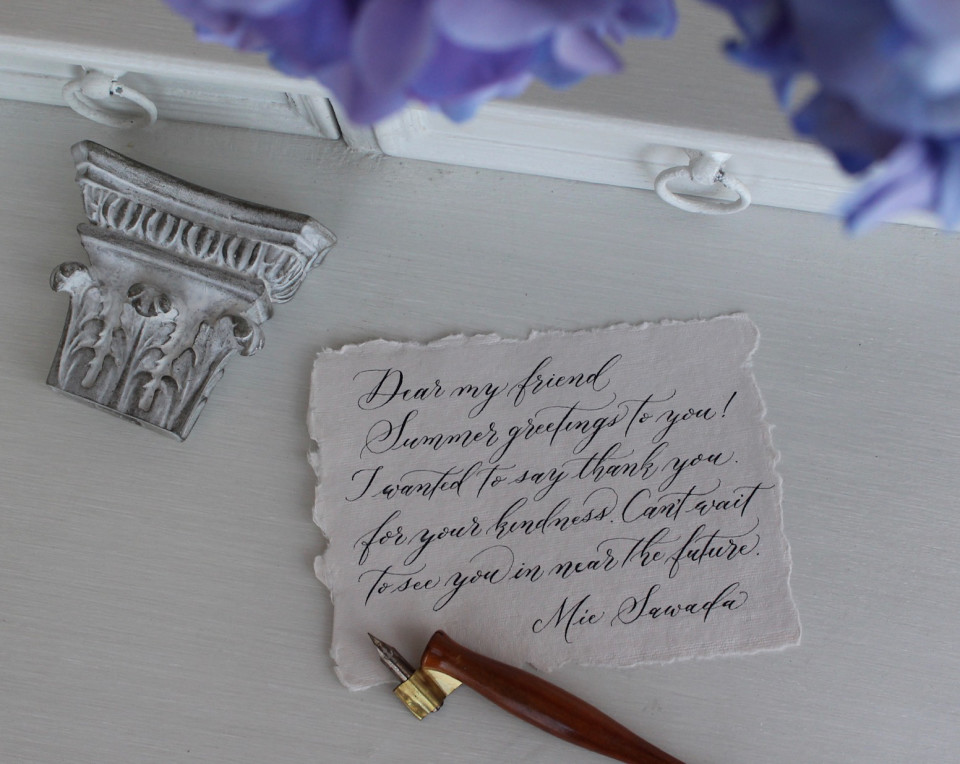 Dear my friend
Summer greetings to you!
I wanted to say thank you.
for your kindness. Can't wait
to see you in near the future.
Mie Sawada